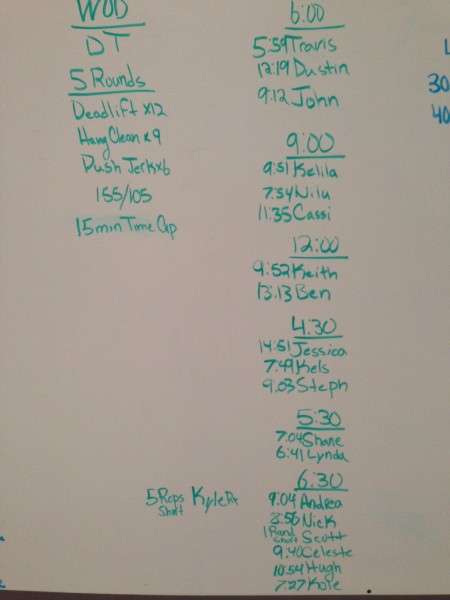 WOD
DT
5 Rounds
Deadlift x12
Hang Clean x9
Push Jerk x6
155/105
15 min Time Cap
6:00
5:59 Travis
12:19 Dustin
9:12 John
9:00
9:51 Kelila
7:54
11:35 Cassi
12:00
9:52 Keith
13:13 Ben
4:30
14:51 Jessica
7:49 Kels
9:03 Steph
5:30
7:04 Shane
6:41 Lynda
6:30
9:04 Andrea
8:56 Nick
1 Rand Short Scott
9:40 Celeste
10:54 Hugh
7:27 Kole
5 Reps Short Kyle Rx
30
40